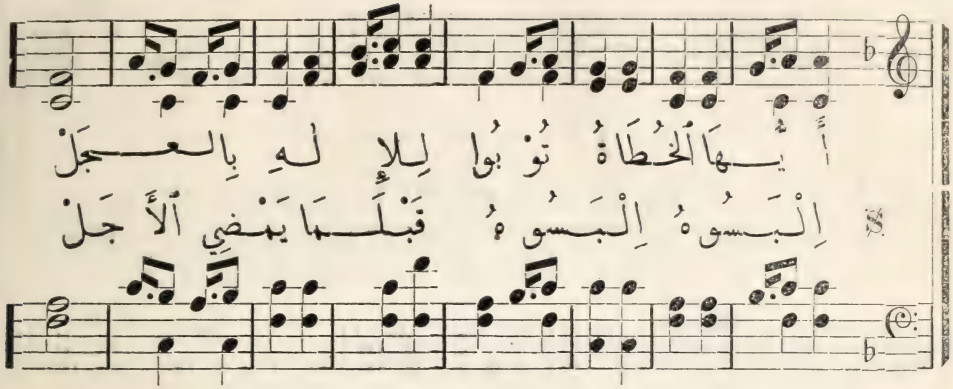 أَ يُّـهَا ٱلْخُـطَاةُ تُوْ بُوا لِـلإِ لٰـهِ بِالـعَـجَلْ
اِلْـبَـسُوهُ اِلْـبَـسُوهُ قَبْلَـمَا يَمْضِي ٱلأَ جَلْ